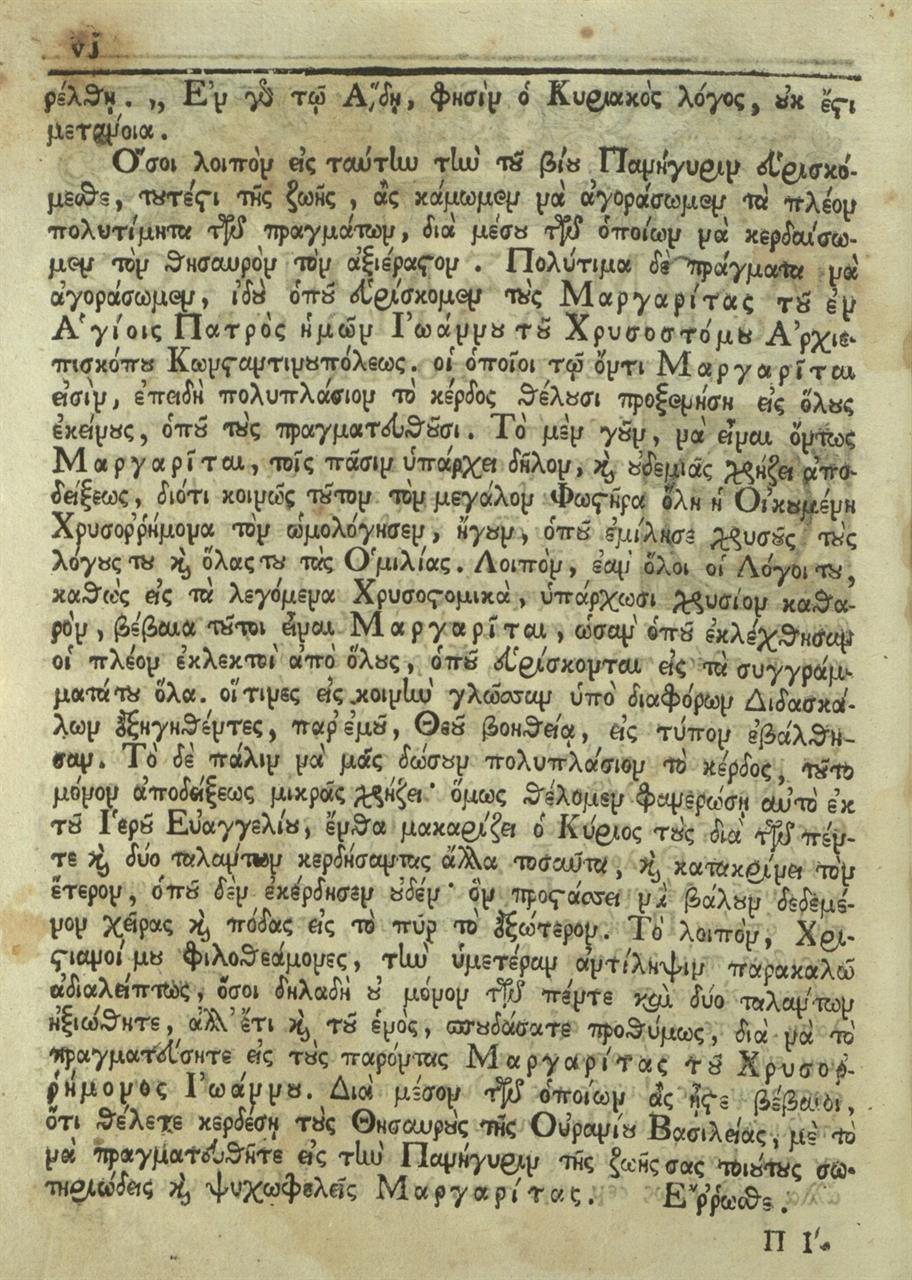 vj
ρέλθῃ. „ Ἐν γὰρ τῷ ᾍδῃ, φησὶν ὁ Κυριακὸς λόγος, ȣκ ἔϛι
μετάνοια.
Ὅσοι λοιπὸν εἰς ταύτην τὴν τȣ͂ βίȣ Πανήγυριν εὑρισκό-
μεθε, τȣτέϛι τῆς ζωῆς, ἂς κάμωμεν νὰ ἀγοράσωμεν τὰ πλέον
πολυτίμητα τῶν πραγμάτων, διὰ μέσȣ τῶν ὁποίων νὰ κερδαίσω-
μεν τὸν θησαυρὸν τὸν ἀξιέραϛον. Πολύτιμα δὲ πράγματα νὰ
ἀγοράσωμεν, ἰδȣ̀ ὁπȣ͂ εὑρίσκομεν τȣ̀ς Μαργαρίτας τȣ͂ ἐν
Ἁγίοις Πατρὸς ἡμῶν Ἰωάννȣ τȣ͂ Χρυσοστόμȣ Ἀρχιε-
πισκόπȣ Κωνϛαντινȣπόλεως. οἱ ὁποῖοι τῷ ὄντι Μαργαρῖται
εἰσὶν, ἐπειδὴ πολυπλάσιον τὸ κέρδος θέλȣσι προξενήση εἰς ὅλȣς
ἐκείνȣς, ὁπȣ͂ τȣ̀ς πραγματευθȣ͂σι. Τὸ μὲν γȣ͂ν, νὰ εἶναι ὄντως
Μαργαρῖται, τοῖς πᾶσιν ὑπάρχει δῆλον, ϗ ȣδεμιᾶς χρῄζει ἀπο-
δείξεως, διότι κοινῶς τȣ͂τον τὸν μεγάλον Φωϛῆρα ὅλη ἡ Οἰκȣμένη
Χρυσοῤῥήμονα τὸν ὡμολόγησεν, ἤγȣν, ὁπȣ͂ ἐμίλησε χρυσȣ͂ς τȣ̀ς
λόγȣς τȣ ϗ ὅλας τȣ τὰς Ὁμιλίας. Λοιπὸν, ἐὰν ὅλοι οἱ Λόγοι τȣ,
καθὼς εἰς τὰ λεγόμενα Χρυσοϛομικὰ, ὑπάρχωσι χρυσίον καθα-
ρὸν, βέβαια τȣ͂τοι εἶναι Μαργαρῖται, ὡσὰν ὁπȣ͂ ἐκλέχθησαν
οἱ πλέον ἐκλεκτοὶ ἀπὸ ὅλȣς, ὁπȣ͂ εὑρίσκονται εἰς τὰ συγγράμ-
ματά τȣ ὅλα. οἵτινες εἰς κοινὴν γλῶσσαν ὑπὸ διαφόρων Διδασκά-
λων ἐξηγηθέντες, παρ' ἐμȣ͂, Θεȣ͂ βοηθείᾳ, εἰς τύπον ἐβάλθη-
σαν. Τὸ δὲ πάλιν νὰ μᾶς δώσȣν πολυπλάσιον τὸ κέρδος, τȣ͂το
μόνον ἀποδείξεως μικρᾶς χρῄζει· ὅμως θέλομεν φανερώση αὐτὸ ἐκ
τȣ͂ Ἱερȣ͂ Εὐαγγελίȣ, ἔνθα μακαρίζει ὁ Κύριος τȣ̀ς διὰ τῶν πέν-
τε ϗ δύο ταλάντων κερδήσαντας ἄλλα τοσαῦτα, ϗ κατακρίνει τὸν
ἕτερον, ὁπȣ͂ δὲν ἐκέρδησεν ȣδέν· ὃν προϛάσσει νὰ βάλȣν δεδεμέ-
νον χεῖρας ϗ πόδας εἰς τὸ πύρ τὸ ἐξώτερον. Τὸ λοιπὸν, Χρι-
ϛιανοί μȣ φιλοθεάμονες, τὴν ὑμετέραν ἀντίληψιν παρακαλῶ
ἀδιαλείπτως, ὅσοι δηλαδὴ ȣ μόνον τῶν πέντε καὶ δύο ταλάντων
ἠξιώθητε, ἀλλ' ἔτι ϗ τȣ͂ ἑνὸς, σπȣδάσατε προθύμως, διὰ νὰ τὸ
πραγματεύσητε εἰς τȣ̀ς παρόντας Μαργαρίτας τȣ͂ Χρυσοῤ-
ῥήμονος Ἰωάννȣ. Διὰ μέσον τῶν ὁποίων ἂς ἦϛε βέβαιοι,
ὅτι θέλετε κερδέση τȣ̀ς Θησαυρȣ̀ς τῆς Οὐρανίȣ Βασιλείας, μὲ τὸ
νὰ πραγματευθῆτε εἰς τὴν Πανήγυριν τῆς ζωῆς σας τοιȣ́τȣς σω-
τηριώδεις ϗ ψυχωφελεῖς Μαργαρίτας. Ἔῤῥωσθε.
Π Ι'-